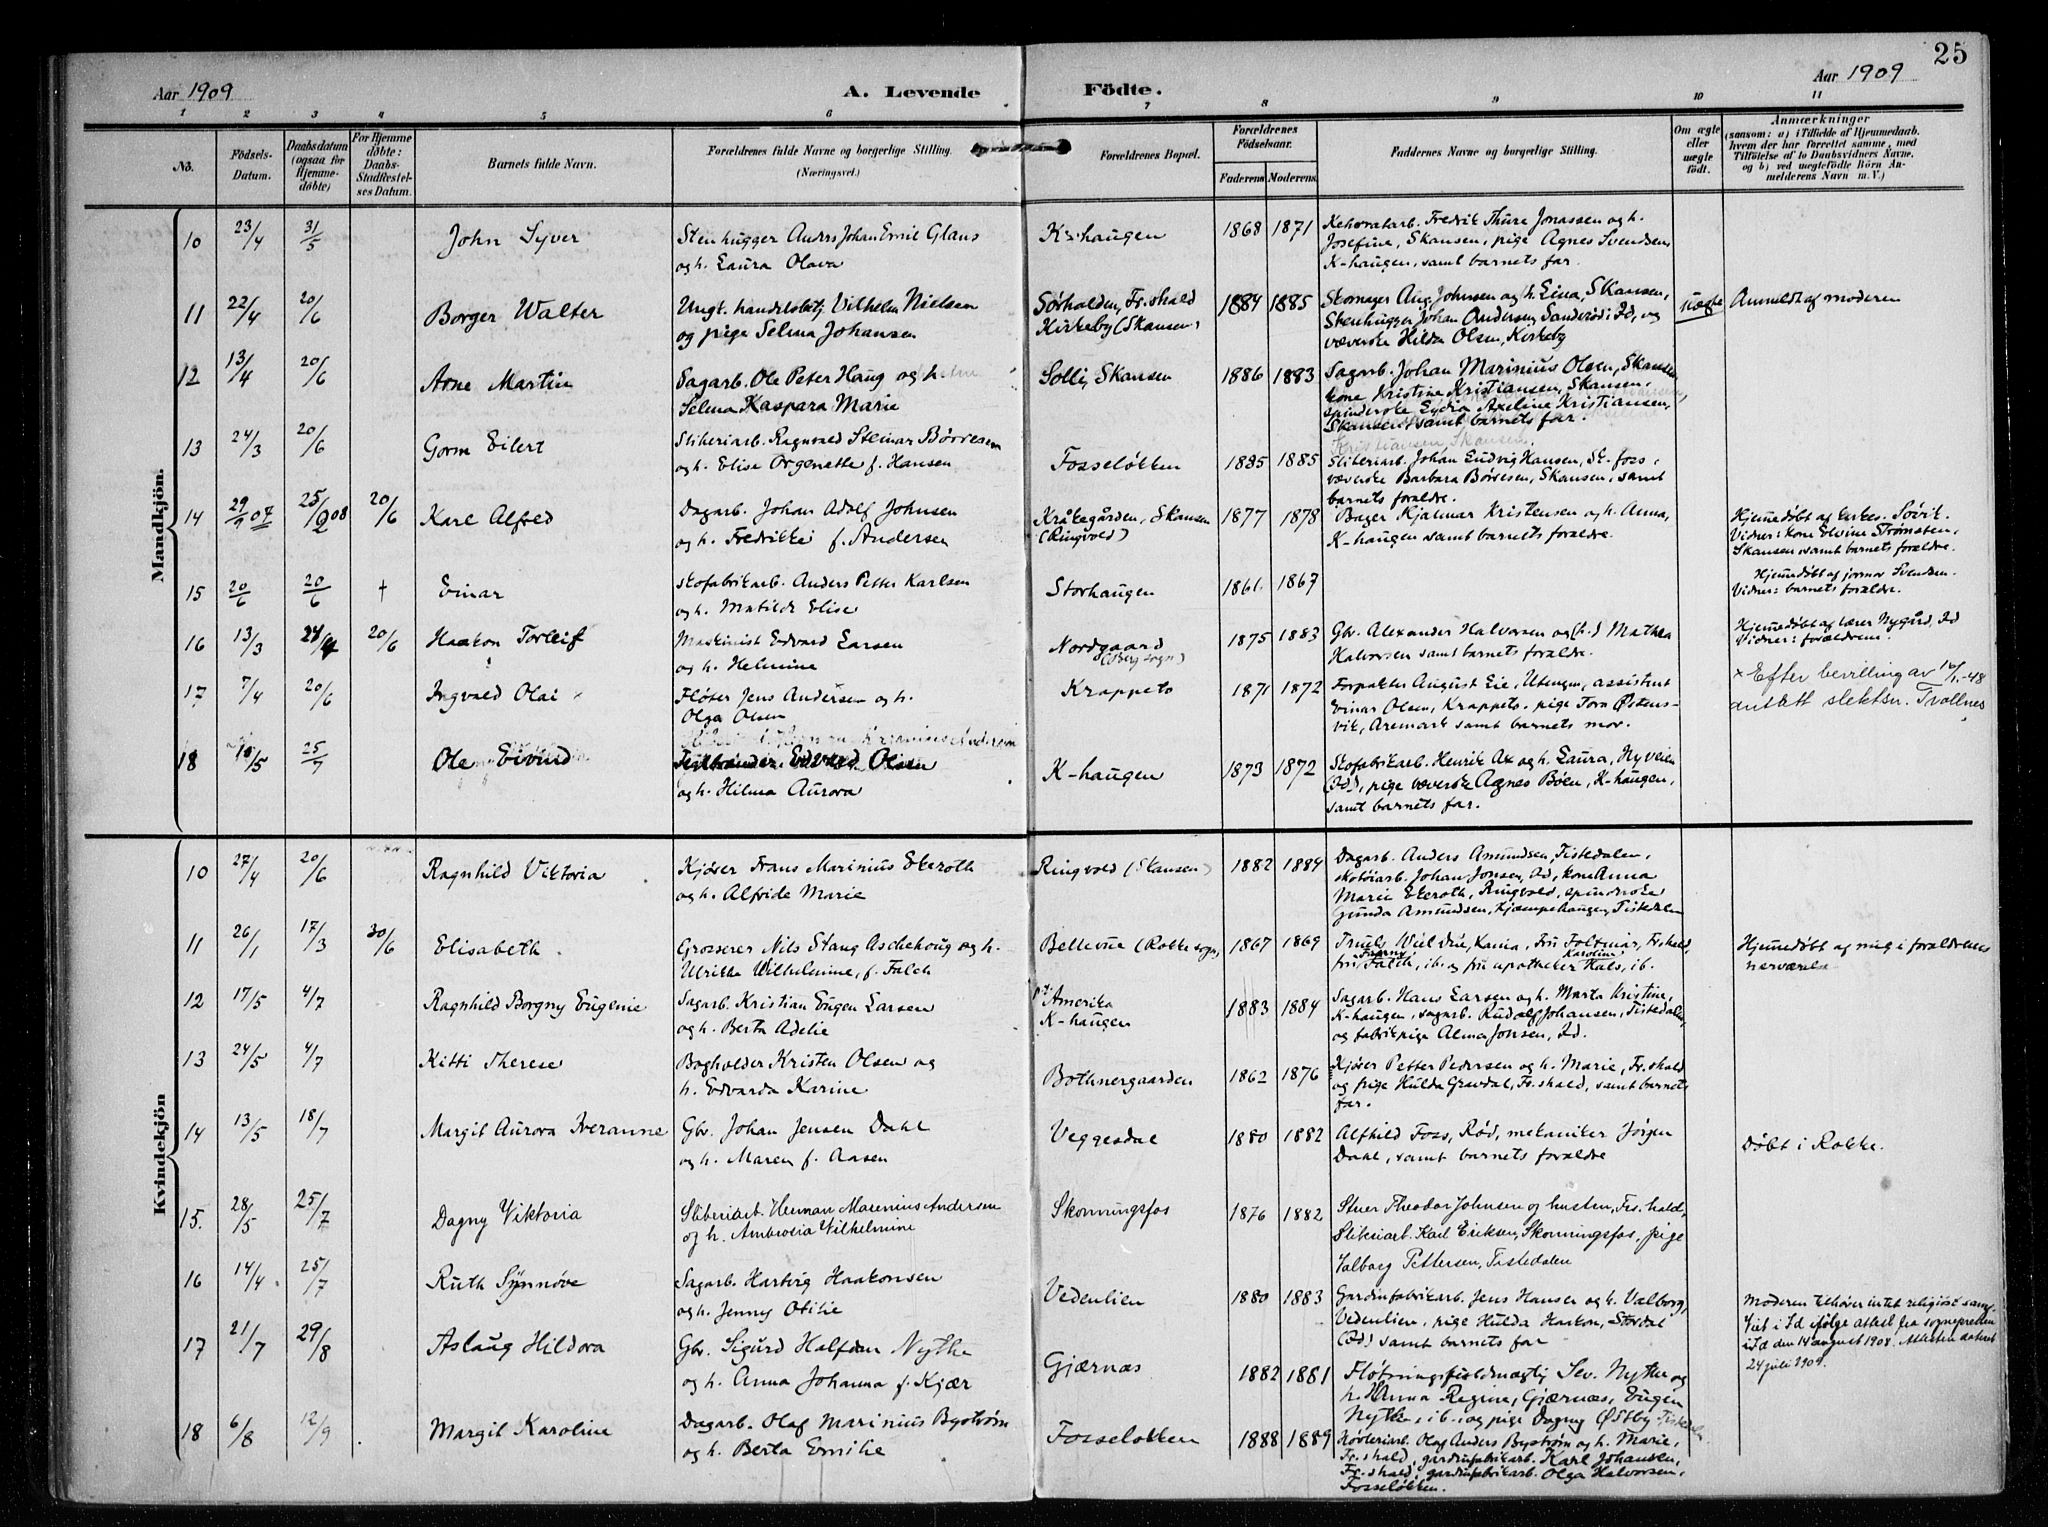 25
Aar 1909
A. Levende Födte.
Aar 1909
1 2 3 4 5 6 7 8 9 10 11
No.
Födsels-Datum.
Daabsdatum (ogsaa for Hjemmedøbte)
For Hjemmedøbte: Daabs-Stadfæstelses Datum.
Barnets fulde Navn.
Forældrenes fulde Navne og borgerlige Stilling. (Næringsvei.)
Forældrenes Bopæl.
Forældrenes Födselsaar.
Faderens Moderens
Faddernes Navne og borgerlige Stilling.
Om ægte eller uægte födt.
Anmærkninger
(saasom: a) i Tilfælde af Hjemmedaab, hvem der har forrettet samme, med Tilföielse af to Daabsvidners Navne, og b) ved uægtefödte Börn Anmelderens Navn m. V.)
Mandkjön.
10 23/4 31/5 John Syver
Stenhugger Anders Johan Emil Glans
og h. Laura Olava
K-haugen 1868 1871
Fredrik Thure Jonassen og h.
Josefine, Skansen, pige Agnes Svendsen
K-haugen, samt barnets far.
11 22/4 20/6 Borger Walter
Ungk. handelsbetj. Vilhelm Nielsen
og pige Selma Johansen
Sørhalden, Fr.shald
Kirkeby (Skansen)
1884 1885
Skomager Aug. Johnsen og h. Lina, Skansen,
Stenhugger Johan Andersen, Sanderød i Id, og
væverske Hilda Olsen, Kirkeby
uægte
Anmeldt af moderen
12 13/4 20/6 Arne Martin
Sagarb. Ole Peter Haug og h.
Selma Kaspara Marie
Solli, Skansen 1886 1883
Sagarb. Johan Marinius Olsen, Skansen,
kone Kristine Kristiansen, Skansen,
spinderske Lydia Axeline Kristiansen,
Skansen, samt barnets far.
13 24/3 20/6 Gorm Eilert
Sliberiarb. Ragnvald Steinar Børresen
og h. Elise Orgenette f. Hansen
Fosseløkken 1885 1885
Sliberiarb. Johan Ludvig Hansen, Sk.foss,
væverske Barbara Børresen, Skansen, samt
barnets forældre.
14 29/9 07 25/2 08 20/6 Karl Alfred
Dagarb. Johan Adolf Johnsen
og h. Fredrikke f. Andersen
Kråkegården, Skansen
(Ringvold)
1877 1878
Bager Hjalmar Kristensen og h. Anna,
K-haugen samt barnets forældre.
Hjemmedøbt af kirkes. Søvik.
Vidner: kone Elvine Strømsten,
Skansen samt barnets forældre.
15 20/6 20/6 † Einar
Skofabrikarb. Anders Petter Karlsen
og h. Matilde Elise
Storhaugen 1861 1867
Hjemmedøbt af jormor Svendsen.
Vidner: barnets forældre.
16 13/3 24/4 20/6 Haakon Torleif
Maskinist Edvard Larsen
og h. Helmine
Nordgaard
(Berg sogn)
1875 1883
Gbr. Alexander Halvorsen og (h.) Mathea
Halvorsen samt barnets forældre.
Hjemmedøbt af lærer Nygård, Id
Vidner: forældrene.
17 7/4 20/6 Ingvald Olai ×
Fløter Jens Andersen og h.
Olga Olsen
Krappeto 1871 1872
Forpakter August Lie, Utengen, assistent
Einar Olsen, Krappeto, pige Tora Østensvik, Aremark samt barnets mor.
× Efter bevilling av 16/1-48
antatt slektsn. Tvallnes
18 10/5 25/7 Ole Eivind
Edvard Olsen
og h. Hilma Aurora
K-haugen 1873 1872
Skofabrikarb. Henrik Ax og h. Laura, Nyveien
(Id), pige væverske Agnes Bøen, K-haugen,
samt barnets far.
Kvindekjön
10 27/4 20/6 Ragnhild Viktoria
Kjører Frans Marinius Ekeroth
og h. Alfride Marie
Ringvold (Skansen) 1882 1884
Dagarb. Anders Amundsen, Tistedalen,
skotøiarb. Johan Jonsen, Id, kone Anna
Marie Ekeroth, Ringvold, spinderske
Gunda Amundsen, Kjæmpehaugen, Tistedalen
11 26/1 17/3 30/6 Elisabeth
Grosserer Nils Stang Aschehoug og h.
Ulrikka Wilhelmine, f. Falch
Bellevue (Rokke sogn) 1867 1869
Truels Wiel Due, Kania, Fru Foltmar, Fr.shald,
fru Falch, ib. og fru apotheker Karoline Hals, ib.
Hjemmedøbt af mig i forældrenes
nærværelse
12 17/5 4/7 Ragnhild Borgny Eugenie
Sagarb. Kristian Eugen Larsen
og h. Berta Adelie
p.t. Amerika
K-haugen
1883 1884
Sagarb. Hans Larsen og h. Marta Kristine,
K-haugen, sagarb. Rudolf Johansen, Tistedalen,
og fabrikpige Alma Jonsen, Id.
13 24/5 4/7 Kitti Therese
Bogholder Kristen Olsen og
h. Edvarda Karine
Bothnergaarden 1862 1876
Kjører Petter Pedersen og h. Marie, Fr.shald
og pige Hulda Gravdal, Fr.shald, samt barnets
far.
14 13/5 18/7 Margit Aurora Iveranne
Gbr. Johan Jensen Dahl
og h. Maren f. Aasen
Veggesdal 1880 1882
Alfhild Foss, Rød, mekaniker Jörgen
Dahl, samt barnets forældre
Døbt i Rokke.
15. 28/5 25/7 Dagny Viktoria
Sliberiarb. Herman Marenius Andersen
og h. Ambrosia Wilhelmine
Skonningsfos 1876 1882
Stuer Theodor Johnsen og hustru, Fr.hald,
Sliberiarb. Karl Eriksen, Skonningsfos, pige
Valborg Pettersen, Tistedalen
16 14/4 25/7 Ruth Synnøve
Sagarb. Hartvig Haakonsen
og h. Jenny Otilie
Vedenlien 1880 1883
Gardinfabrikarb. Jens Hansen og h. Valborg,
Vedenlien, pige Hulda Haakon, Stordal
(Id) samt barnets far
Moderen tilhører intet religiøst samfund i Id ifølge attest fra sognepresten
i Id den 14 august 1908. Attesten dateret
24 juli 1909.
17 21/7 29/8 Aslaug Hildora
Gbr. Sigurd Halfdan Nythe
og h. Anna Johanna f. Kjær
Gjærnæs 1882 1881
Fløtningsfuldmægtig Sev. Nythe og
h. Anna Regine, Gjærnæs, Eugen
Nythe, ib. og pige Dagny Østby Tistedalen.
18 6/8 12/9 Margit Karoline
Dagarb. Olaf Marinius Byström
og h. Berta Emilie
Fosseløkken 1888 1889
Høvleriarb. Olaf Anders Byström og h. Marie,
Fr.shald, gardinfabrikarb. Karl Johansen,
Fr.shald, gardinfabrikarb. Olga Halvorsen,
Fosseløkken.